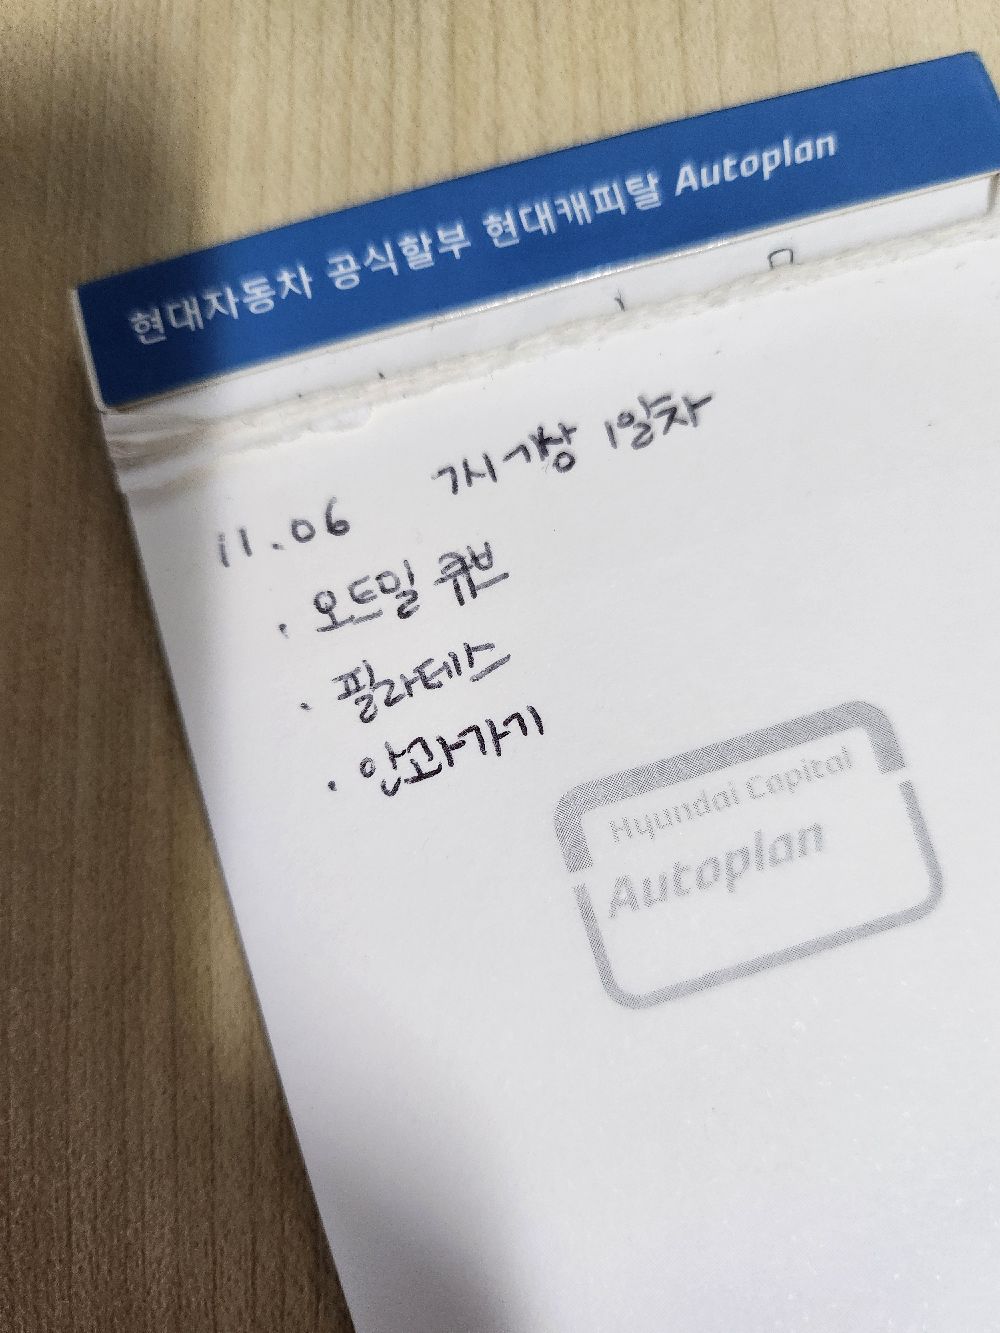 현대자동차 공식할부 현대캐피탈 Autoplan
11.06 7시기상 1일차
· 오트밀 큐브
· 필라테스
· 안과가기
Hyundai Capital
Autoplan